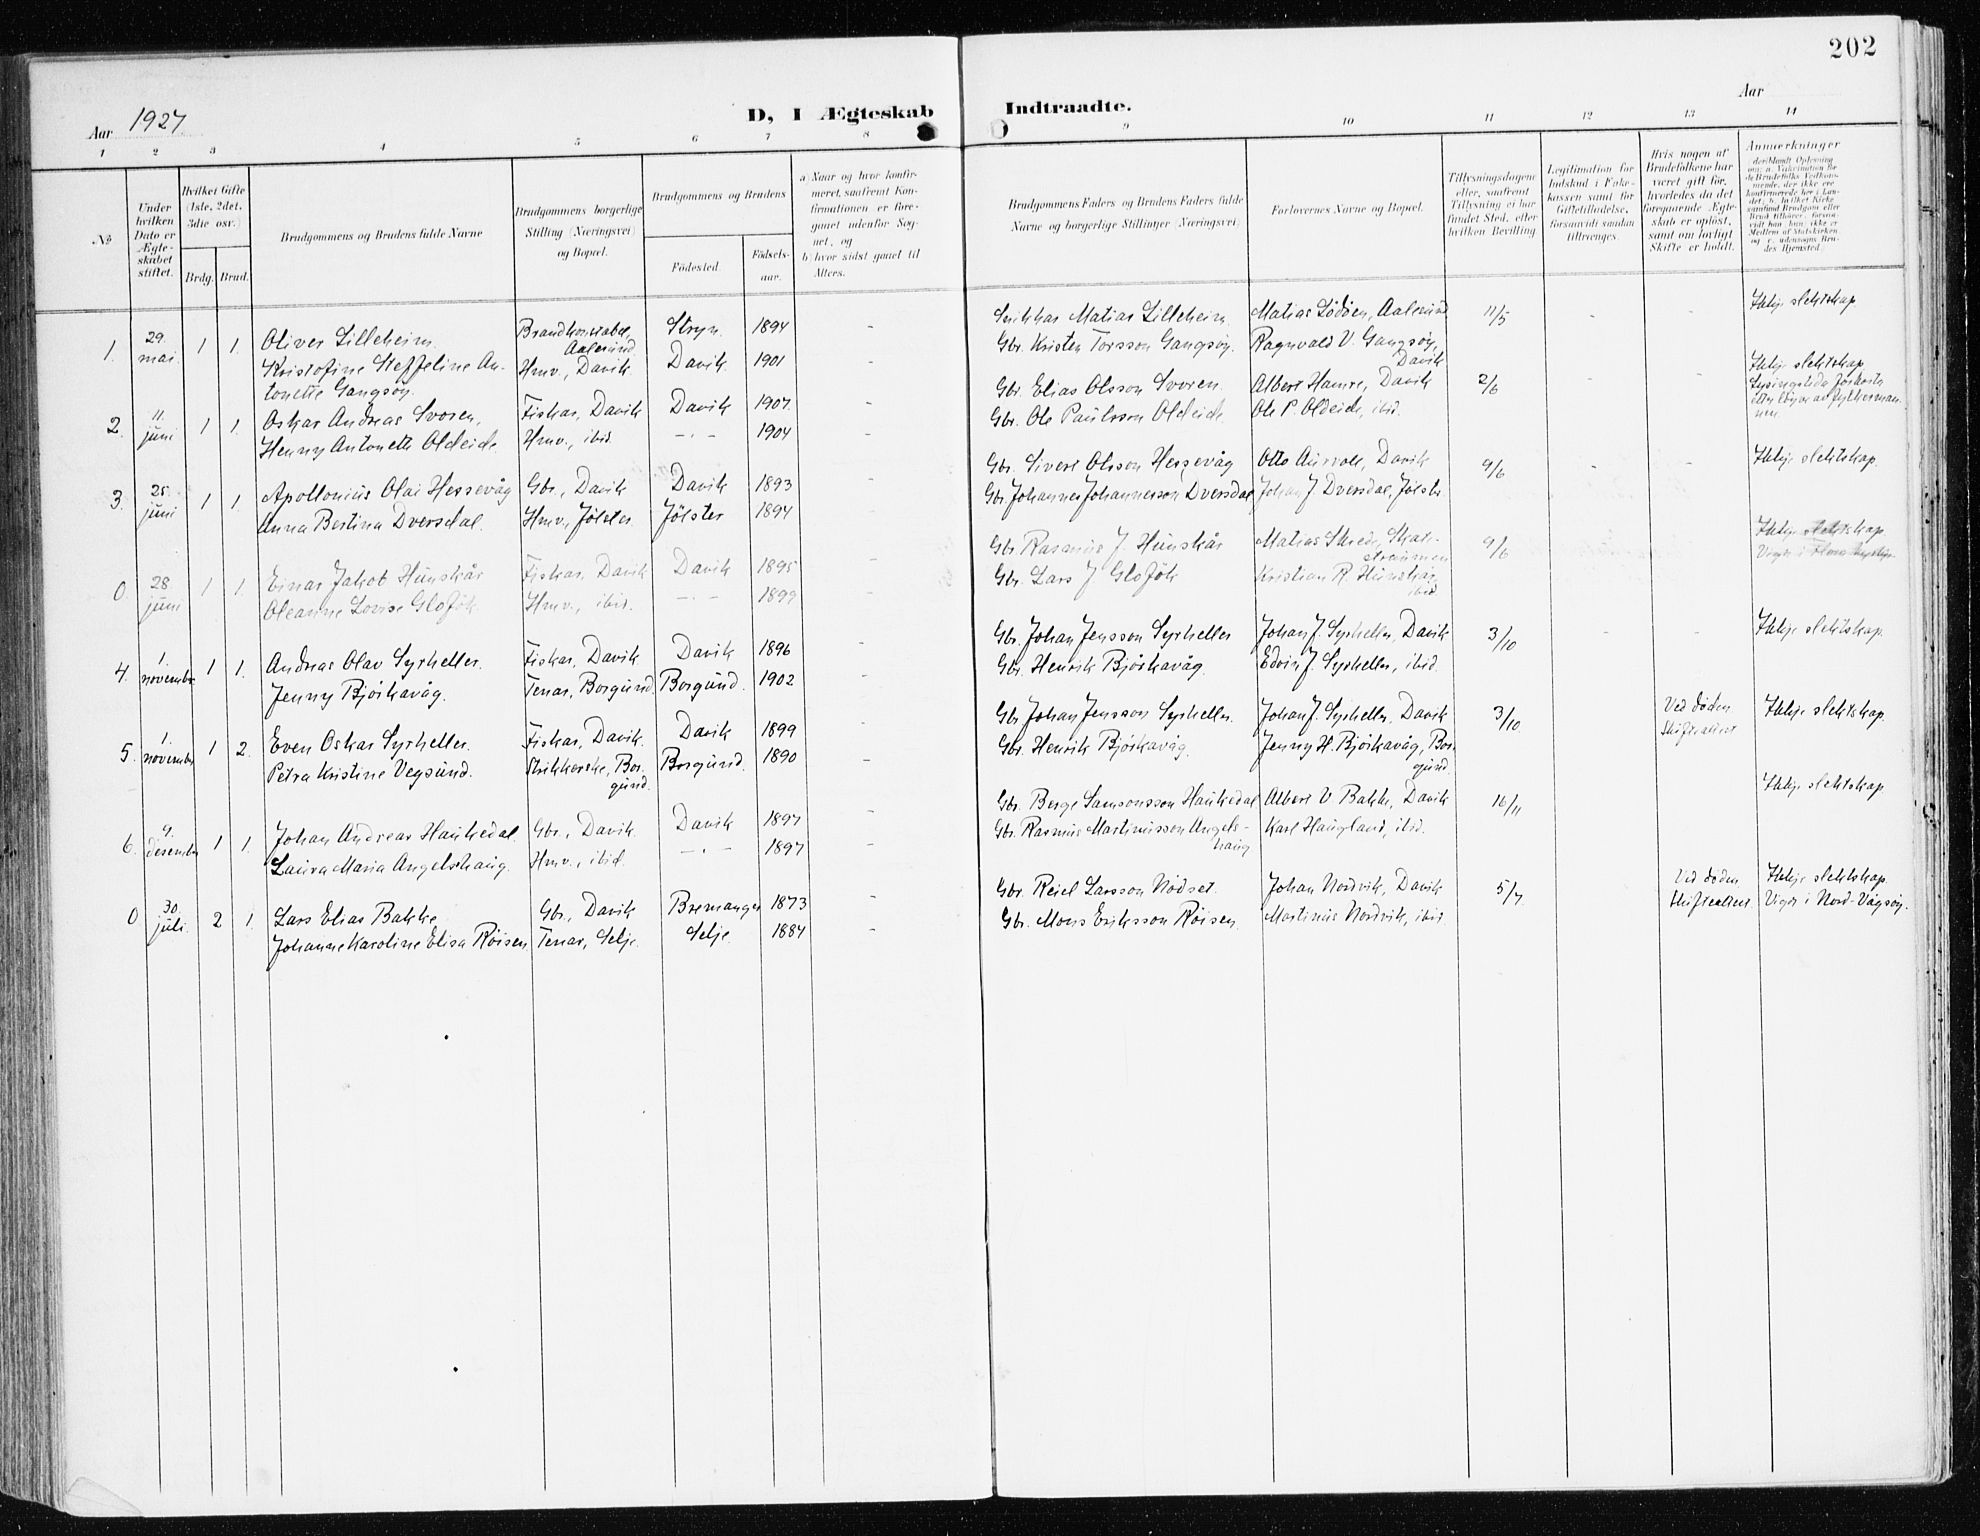 202
Aar 1927
D, I Ægteskab Indtraadte.
Aar
1 2 3 4 5 6 7 8 9 10 11 12 13 14
No
Under hvilken Dato er Ægteskabet stiftet.
Hvilket Gifte (1ste, 2det, 3die osv.)
Brdg. Brud.
Brudgommens og Brudens fulde Navne
Brudgommens borgerlige Stilling (Næringsvei) og Bopæl.
Brudgommens og Brudens
Födested.
Födselsaar.
a) Naar og hvor konfirmeret, saafremt Konfirmationen er foregaaet udenfor Sognet, og
b) hvor sidst gaaet til Alters.
Brudgommens Faders og Brudens Faders fulde Navne og borgerlige Stillinger (Næringsvei)
Forlovernes Navne og Bopæl.
Tillysningsdagene eller, saafremt Tillysning ei har fundet Sted, efter hvilken Bevilling.
Legitimation for Indskud i Enkekassen samt for Giftetilladelse, forsaavidt saadan tiltrænges.
Hvis nogen af Brudefolkene har været gift før, hvorledes da det foregaaende Ægteskab er opløst, samt om lovligt Skifte er holdt.
Anmærkninger
1. 29. mai. 1 1. Oliver Lilleheim. Brandkonstabel, Aalesund Stryn. 1894 - Snikkar Matias Lilleheim. Matias Lødøen, Aalesund 11/5 - - Ikkje slektskap
Kristofine Steffeline Antonette Gangsøy. Hmv., Davik. Davik. 1901 - Gbr. Kristen Torsson Gangsøy. Ragnvald V. Gangsøy, Davik
2. 11. juni 1 1. Oskar Andreas Svoren, Fiskar, Davik Davik 1907. - Gbr. Elias Olsson Svoren. Albert Hamre, Davik 2/6 - - Ikkje slektskap
Henny Antonette Oldeide. Hmv., ibid. -.- 1904 - Gbr. Ole Paulsson Oldeide. Ole P. Oldeide, ibid.
3. 25. juni 1 1. Apollonius Olai Hessevåg Gbr., Davik Davik 1893 - Gbr. Sivert Olsson Hessevåg Otto Aurvoll, Davik 9/6 - - Ikkje slektskap.
Anna Bertina Dversdal. Hmv., Jölster. Jölster 1894 - Gbr. Johannes Johannesson Dversdal Johan J. Dversdal, Jölster.
0. 28 juni 1 1. Einar Jakob Hunskår Fiskar, Davik Davik 1895 - Gbr. Rasmus J. Hunskår Matias Skrede, Skatestraumen 9/6 Ikkje slektskap
Oleanne Lovise Gloføk. Hmv., ibid. -.- 1899 - Gbr. Lars J. Gloføk Kristian R. Hunskår, ibid.
4. 1. november 1 1. Andreas Olav Syrheller. Fiskar, Davik Davik 1896 - Gbr. Johan Jensson Syrheller Johan J. Syrheller, Davik 3/10 - - Ikkje slektskap.
Jenny Bjørkavåg. Tenar, Borgund. Borgund. 1902 - Gbr. Henrik Bjørkavåg. Edvin J. Syrheller, ibid.
5. 1. november 1 2. Even Oskar Syrheller. Fiskar, Davik. Davik 1899 - Gbr. Johan Jensson Syrheller. Johan J. Syrheller, Davik 3/10 Ved døden. Ikkje slektskap.
Petra Kristine Vegsund. Strikkerske, Borgund. Borgund. 1890 - Gbr. Henrik Bjørkavåg. Jenny H. Bjørkavåg, Borgund. Skifteattest
6. 9. desember 1 1. Johan Andreas Haukedal. Gbr., Davik. Davik 1897 - Gbr. Berge Samsonsson Haukedal Albert V. Bakke, Davik 16/11 Ikkje slektskap
Laura Maria Angelshaug. Hmv., ibid. -.- 1897 - Gbr. Rasmus Martinusson Angelshaug Karl Haugland, ibid.
0 30. juli. 2 1. Lars Elias Bakke Gbr., Davik Bremanger 1873 - Gbr. Reiel Larsson Nødset. Johan Nordvik, Davik 5/7 Ved døden. Ikkje slektskap.
Johanne Karoline Elisa Røisen. Tenar, Selje. Selje. 1884 - Gbr. Mons Eriksson Røisen. Martinus Nordvik, ibid. Skifteattest. Vigde i Nord-Vågsøy.